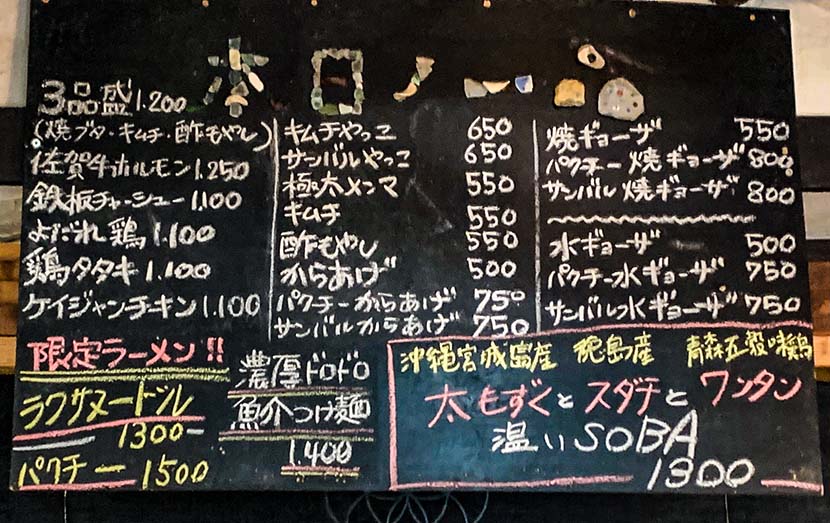 本日ノ一品
3品盛 1.200
(焼ブタ・キムチ・酢もやし)
佐賀牛ホルモン 1.250
鉄板チャーシュー 1.100
よだれ鶏 1.100
鶏タタキ 1.100
ケイジャンチキン 1.100
キムチやっこ 650
サンバルやっこ 650
極太メンマ 550
キムチ 550
酢もやし 550
からあげ 500
パクチーからあげ 750
サンバルからあげ 750
焼ギョーザ 550
パクチー焼ギョーザ 800
サンバル焼ギョーザ 800
水ギョーザ 500
パクチー水ギョーザ 750
サンバル水ギョーザ 750
限定ラーメン!!
ラクサヌードル
1300
パクチー 1500
濃厚ドロドロ
魚介つけ麺
1.400
沖縄宮城島産 徳島産 青森五穀味鶏
太もずくとスダチとワンタン
温いSOBA
1300